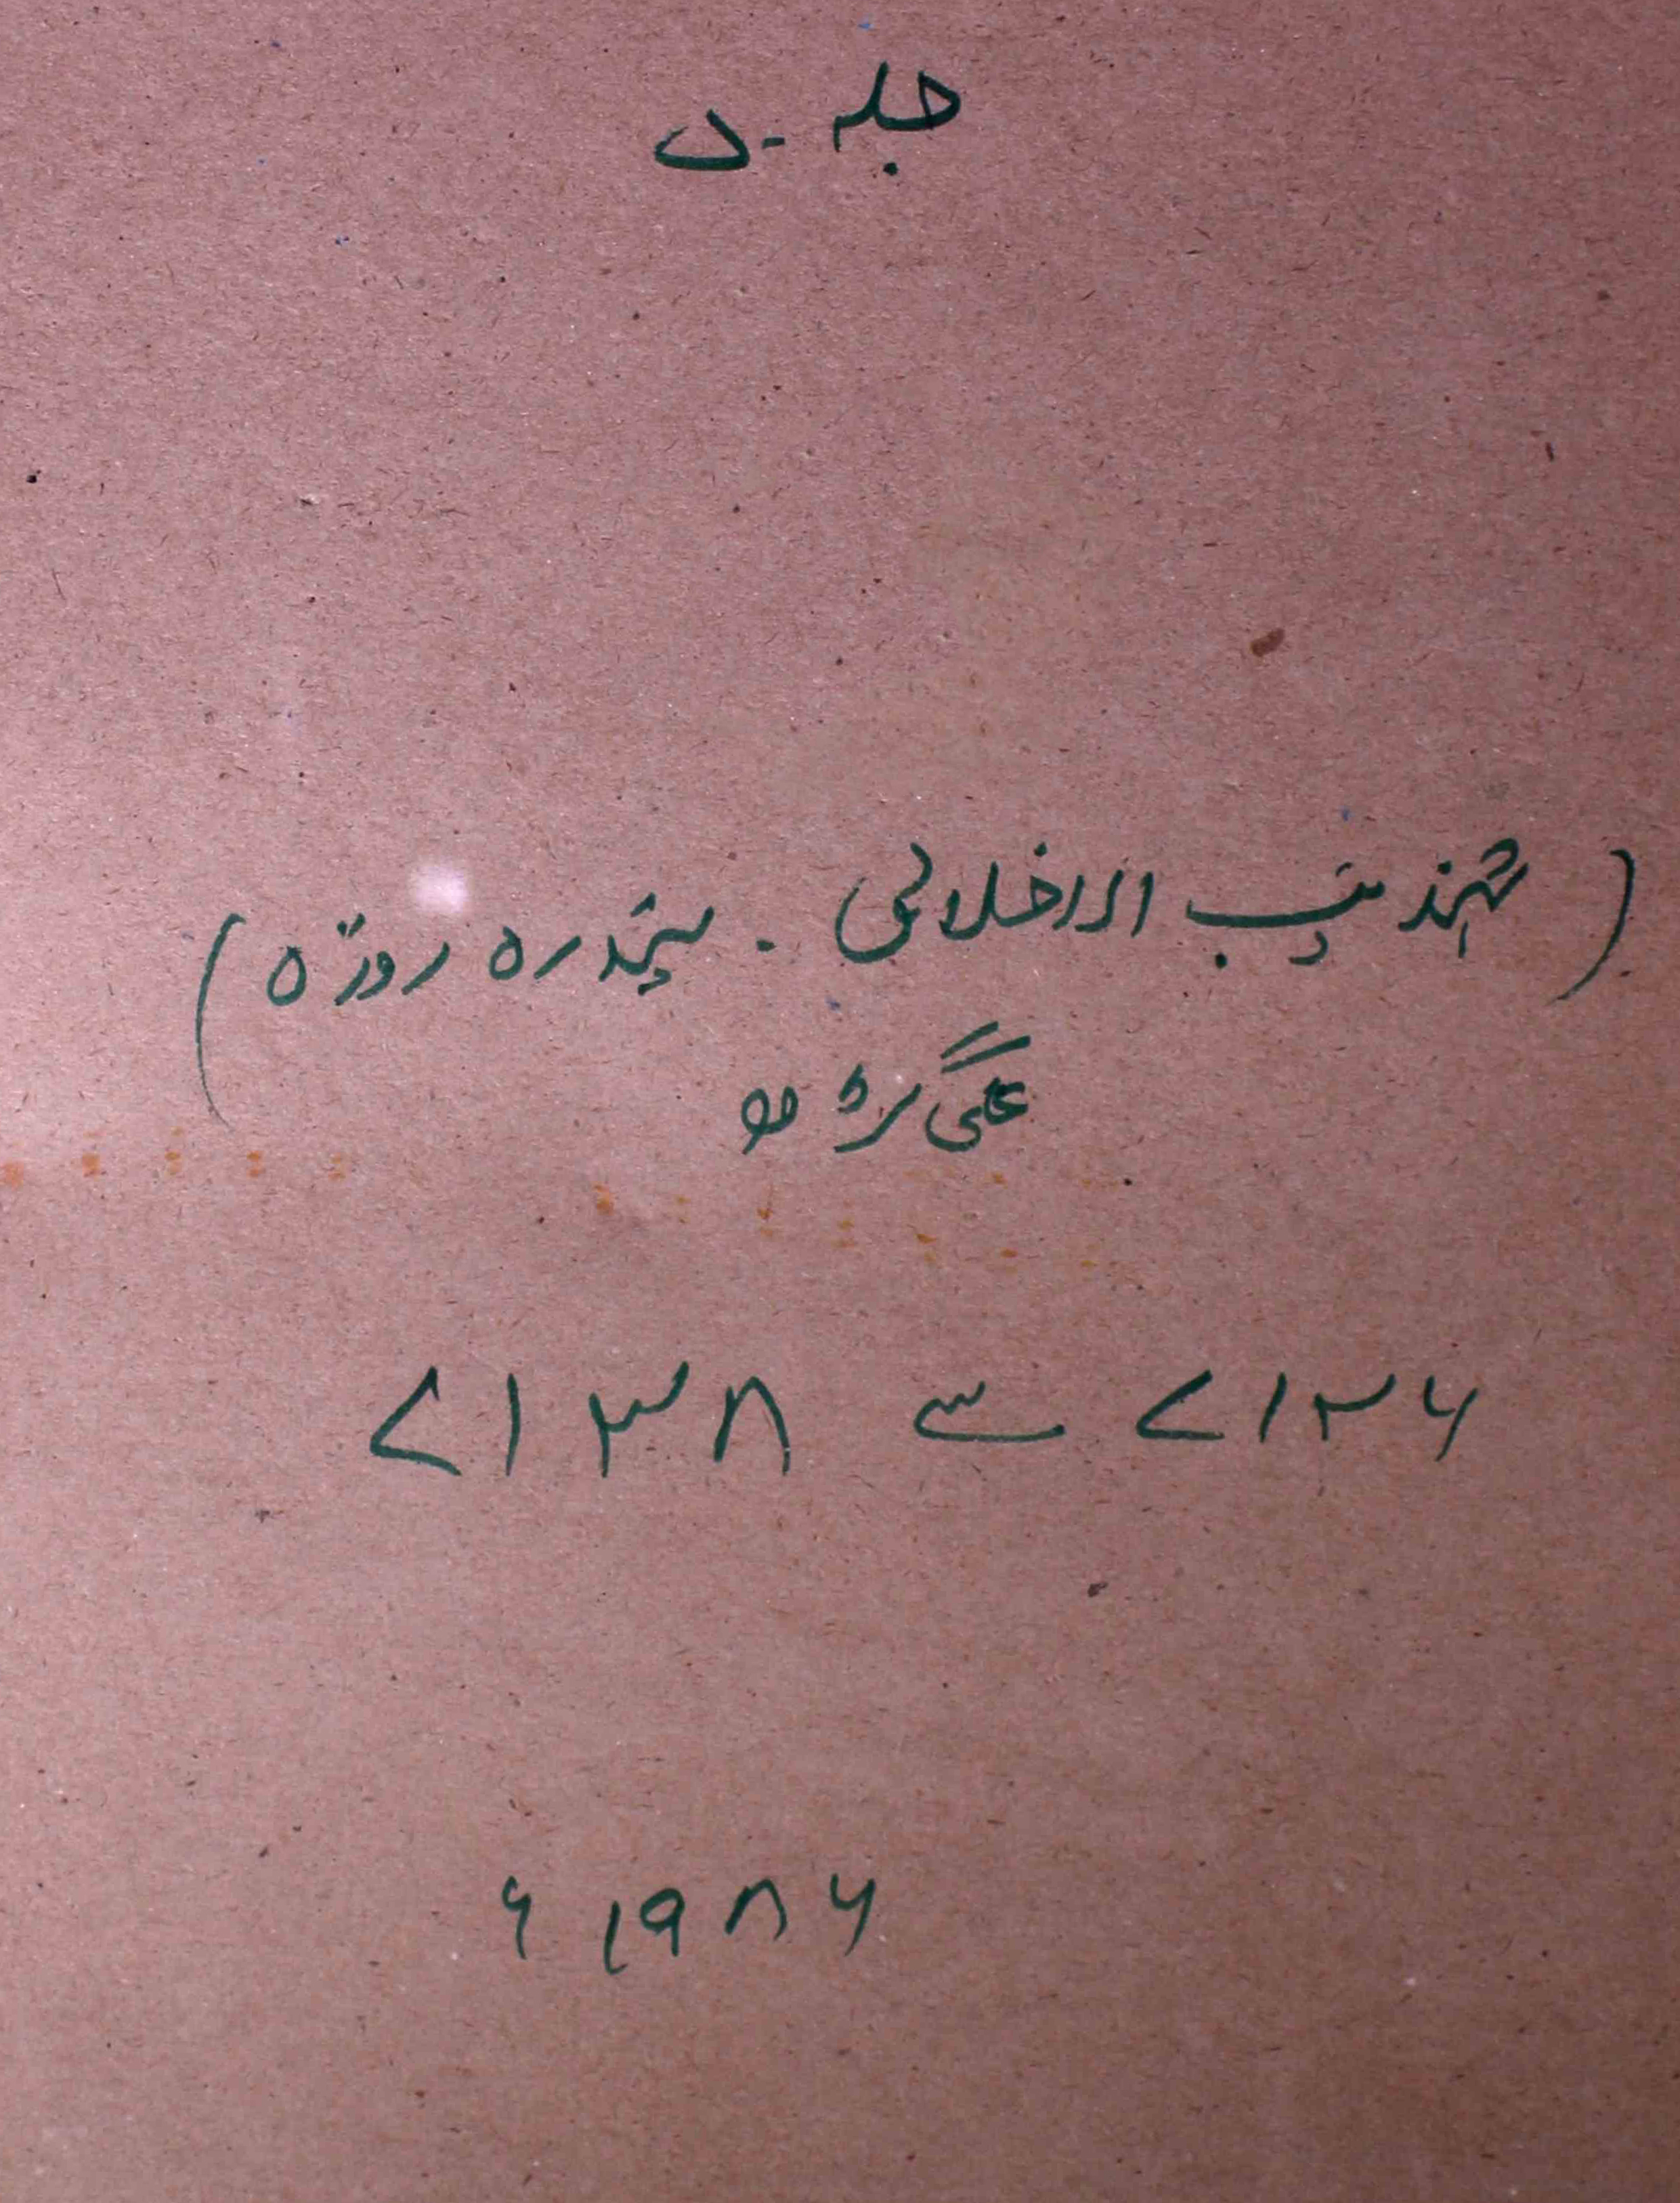 جلد ۵
(تہذیب الاخلاق ۔ پندرہ روزہ)
علی گڑھ
۷۱۲۶ سے ۷۱۳۸
۱۹۸۶ء